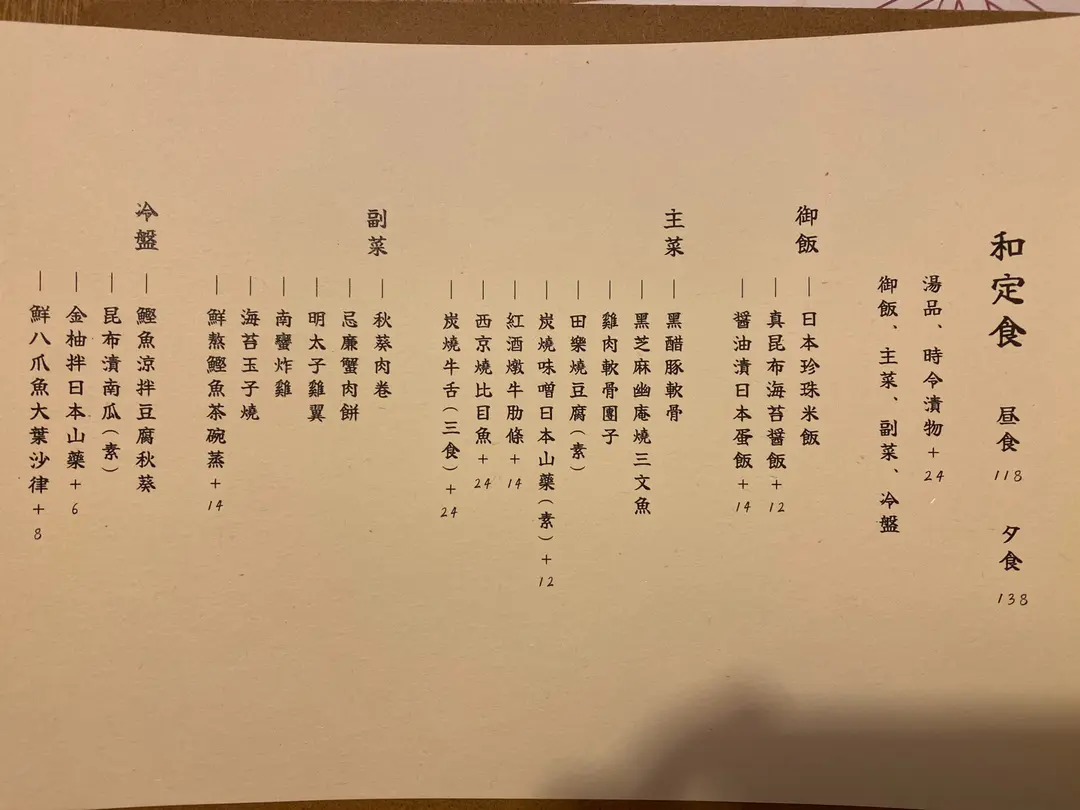 和定食 昼食 118 夕食 138
湯品、時令漬物+24
御飯、主菜、副菜、冷盤
御飯
日本珍珠米飯
真昆布海苔醬飯+12
醬油漬日本蛋飯+14
主菜
黑醋豚軟骨
黑芝麻幽庵燒三文魚
雞肉軟骨團子
田樂燒豆腐(素)
炭燒味噌日本山藥(素)+12
紅酒燉牛肋條+14
西京燒比目魚+24
炭燒牛舌(三食)+24
副菜
秋葵肉卷
忌廉蟹肉餅
明太子雞翼
南蠻炸雞
海苔玉子燒
鮮熬鰹魚茶碗蒸+14
冷盤
鰹魚涼拌豆腐秋葵
昆布漬南瓜(素)
金柚拌日本山藥+6
鮮八爪魚大葉沙律+8